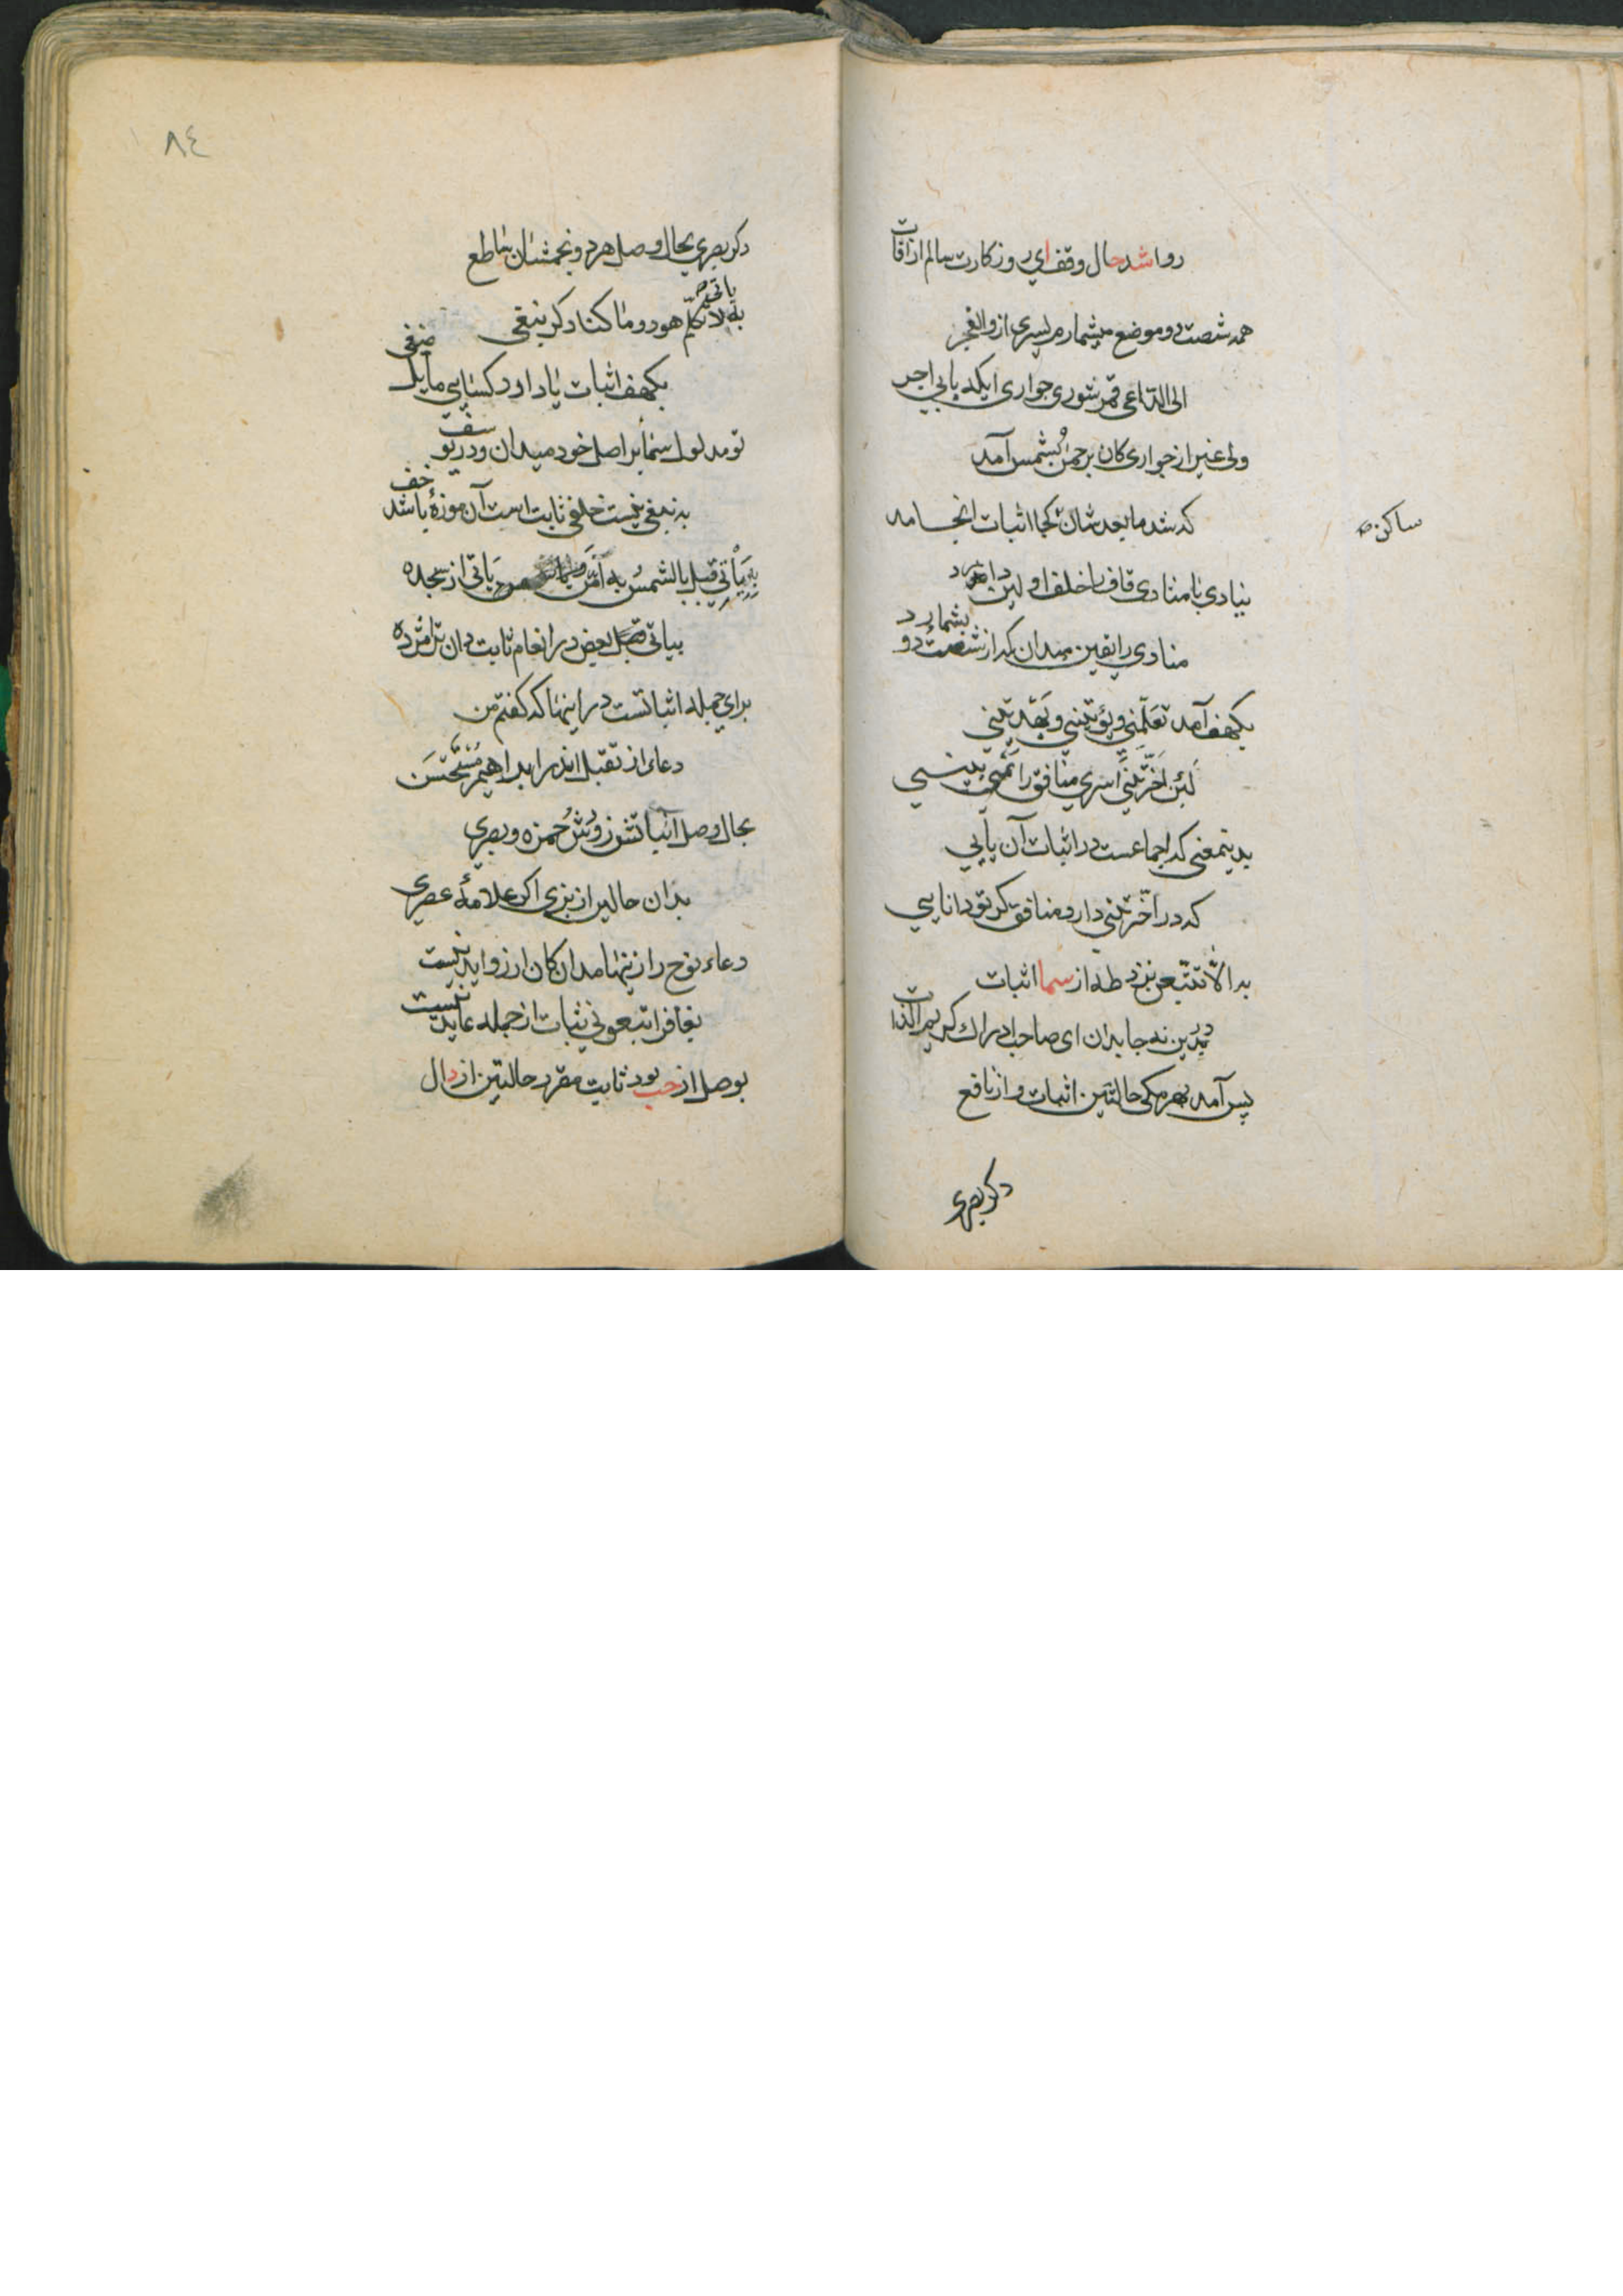 روا شد حال وقف ای روزکارت سالم از آفات
همه شصت دو موضع میشمارم یسری از والفجر
الی الداعی قمر شوری جواری ایکه یابی اجر
ولی غیر از جواری کان برحمن بشمس آمد
که شد ما بعدشان کجا اثبات انجامد
ساکن
ینادی با منادی قاف را خلف اولین دارد
منادی را یقین میدان که از شصت دو بشمارد
بکهف آمد تعلمنی و یؤتینی و یهدینی
لئن اخرتنی اسری منافق را
بدینمعنی که اجماعست در اثبات آن یابی
که در اخرتنی دارد منافق کر تو دانایی
بد الا تتبعن نزد طه از سما اثبات
تمدین نه جا بدان ای صاحب ادراک کریم الذات
پس آمد بهر مکی حالتین اثبات و از نافع
دکر بصری
٨٤
دکر بصری بحال وصل هر دو نجمشان ساطع
به لا تکلم هود و ما کنا دکر نبغی
بکهف اثبات یاد اور کسایی مایل
تو مدلول سما بر اصل خود میدان و در
به نبغی نیست خلفی ثابت است آن موزه باشد
به یأتی قبل بالشمس به امن یاتی از سجده
بیاتی قبل بعض در انعام ثابت دان
برای جمله اثباتست در اینها که کفتم من
دعاء از تقبل اندر ابراهیم مستحسن
بحال وصل اثباتش ز ورش حمزه و بصری
بدان حالین از بزی اکر علامۀ عصری
دعاء نوح را زینها مدان کان ارزواید نیست
بغافر اتبعونی ثبات از جمله عاید نیست
بوصل از حب بود ثابت مقرر حالتین از دال